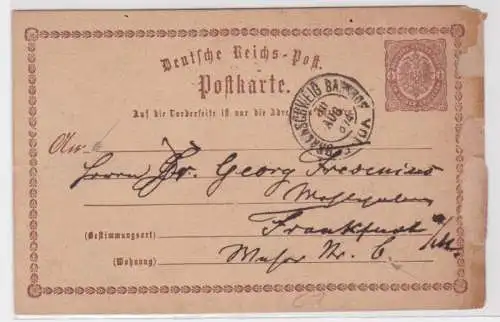 Deutsche Reichs-Post.
Postkarte.
Auf die Vorderseite ist nur die Adre
BRAUNSCHWEIG BAHNHOF
30 AUG
An
Herrn Dr. Georg Fresenius
Wohlgeboren
Frankfurt a/M.
(Bestimmungsort)
(Wohnung)
Nr. 6.